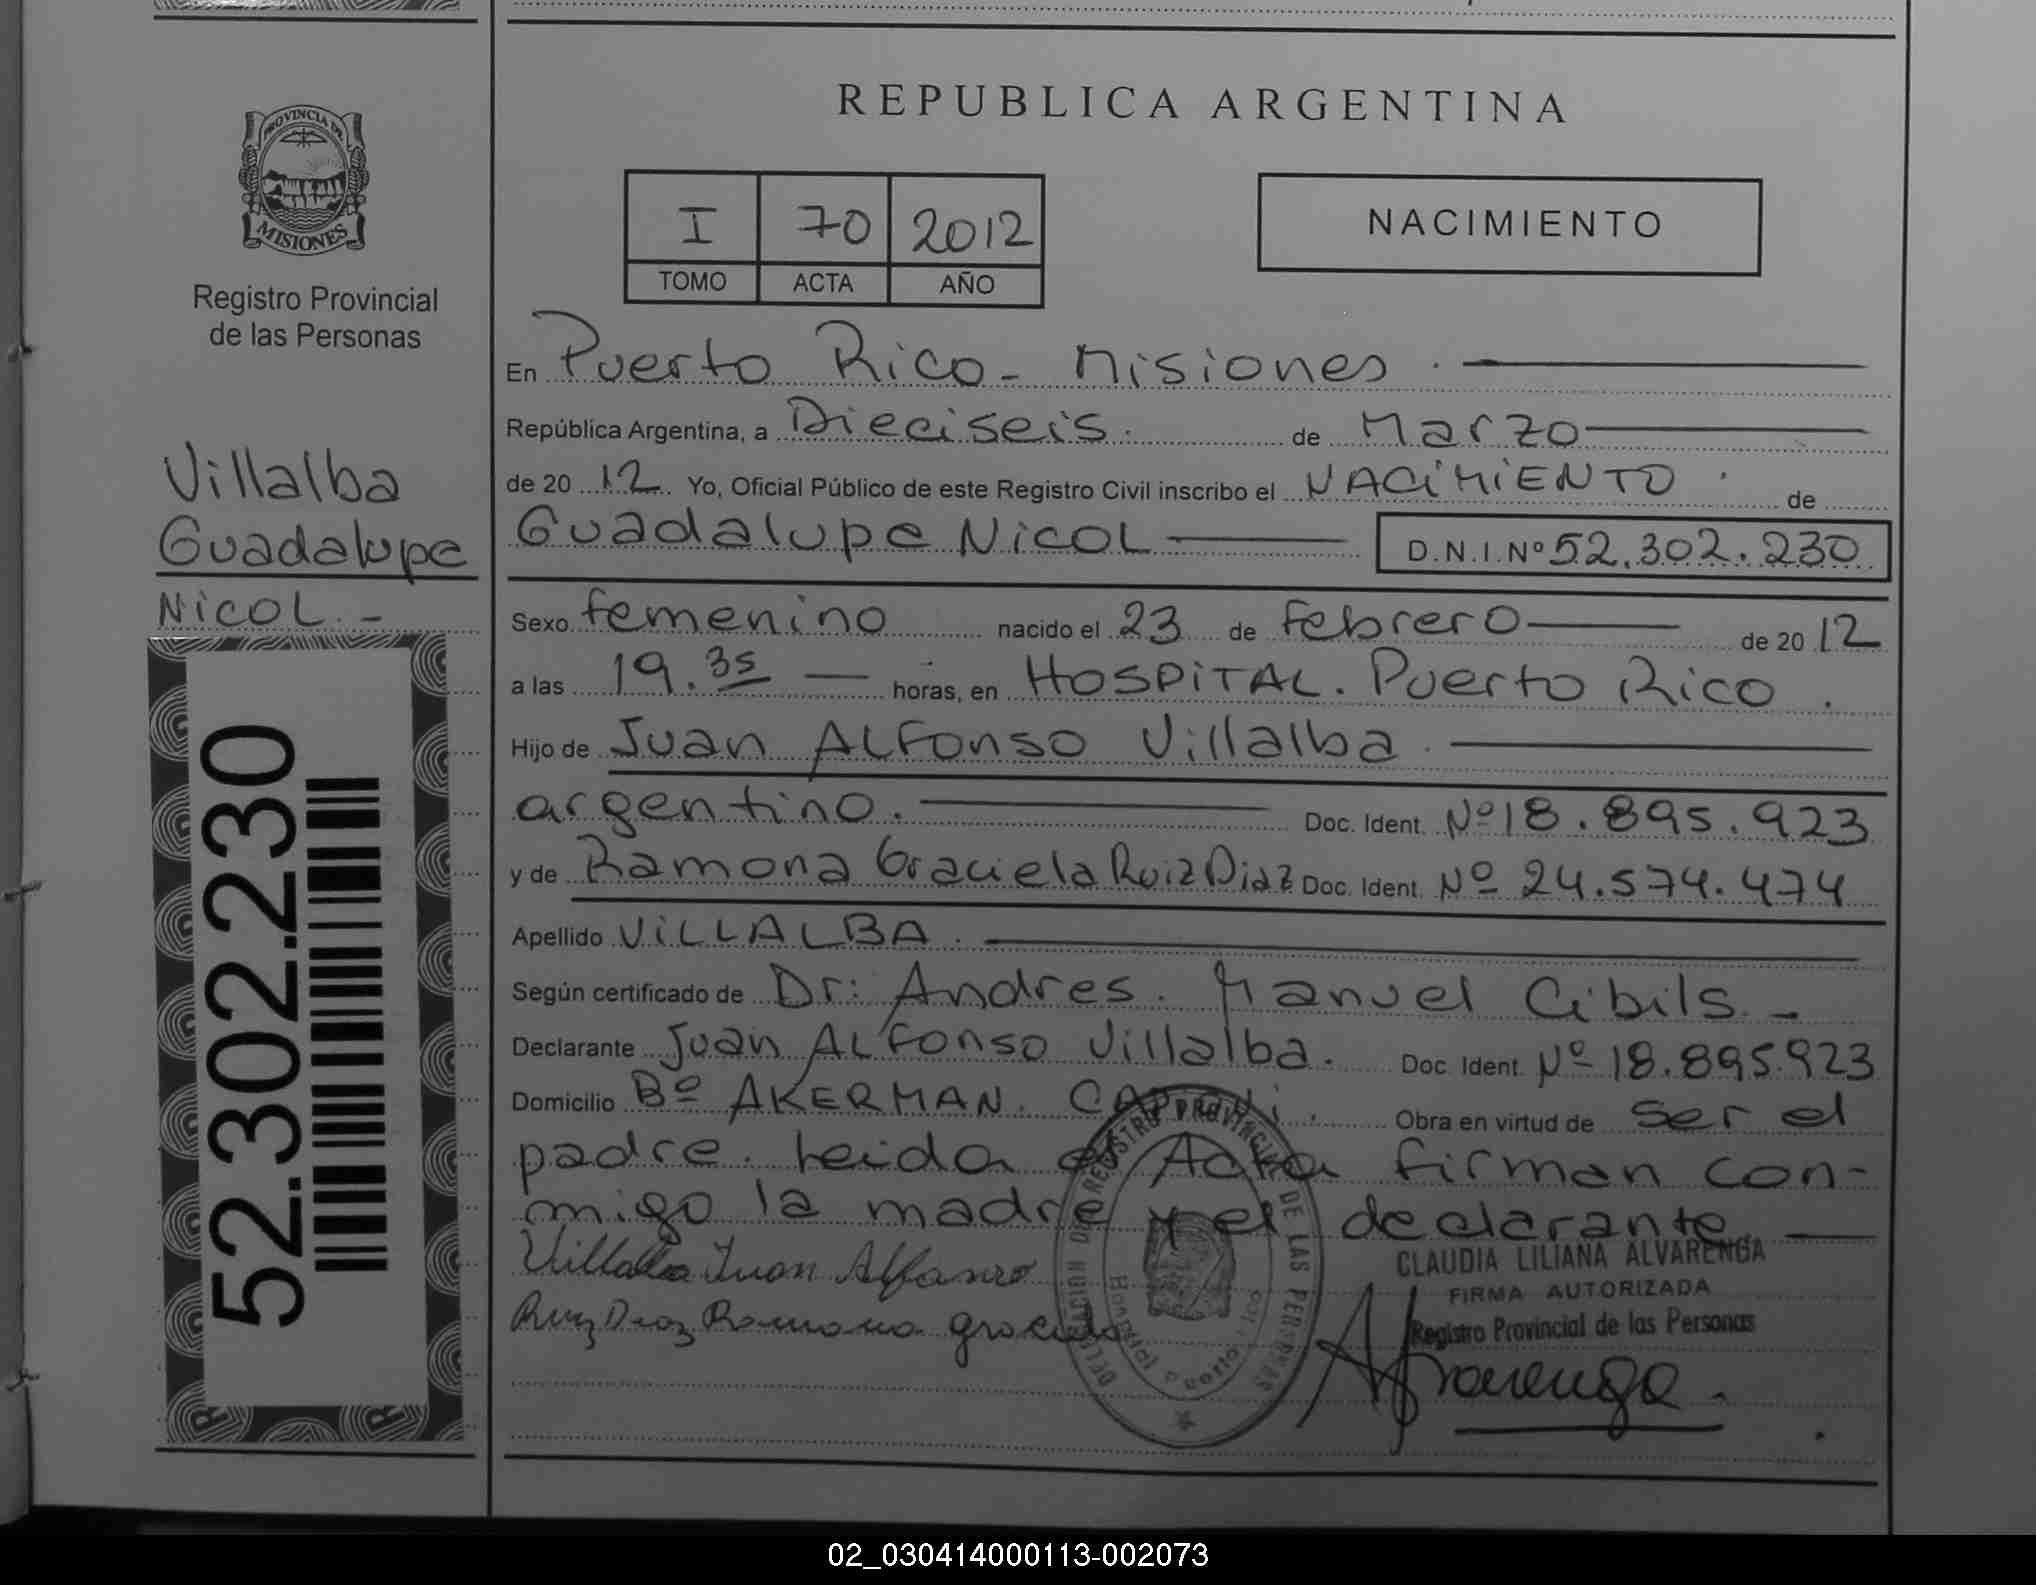 PROVINCIA DE
MISIONES
Registro Provincial
de las Personas
Villalba
Guadalupe
Nicol. -
52.302.230
REPUBLICA ARGENTINA
I 70 2012
TOMO ACTA AÑO
NACIMIENTO
En Puerto Rico - Misiones.
República Argentina, a Dieciseis. de Marzo
de 20 12 Yo, Oficial Público de este Registro Civil inscribo el NACIMIENTO. de
Guadalupe Nicol D.N.I. Nº 52.302.230
Sexo femenino nacido el 23 de febrero de 20 12
a las 19.35 horas, en HOSPITAL. Puerto Rico.
Hijo de Juan ALFonso Villalba.
argentino. Doc. Ident. Nº 18.895.923
y de Ramona Graciela Ruiz Diaz Doc. Ident. Nº 24.574.474
Apellido VILLALBA.
Según certificado de Dr: Andres. Manuel Cibils. -
Declarante Juan ALFonso Villalba. Doc. Ident. Nº 18.895.923
Domicilio Bº AKERMAN. Obra en virtud de ser el
padre. Leida el Acta firman con-
migo la madre y el declarante
Villalba Juan Alfonzo
Ruiz Diaz Ramona graciela
DELEGACION DEL REGISTRO PROVINCIAL DE LAS PERSONAS
Hospital Puerto Rico
CLAUDIA LILIANA ALVARENGA
FIRMA AUTORIZADA
Registro Provincial de las Personas
Alvarenga
02_030414000113-002073